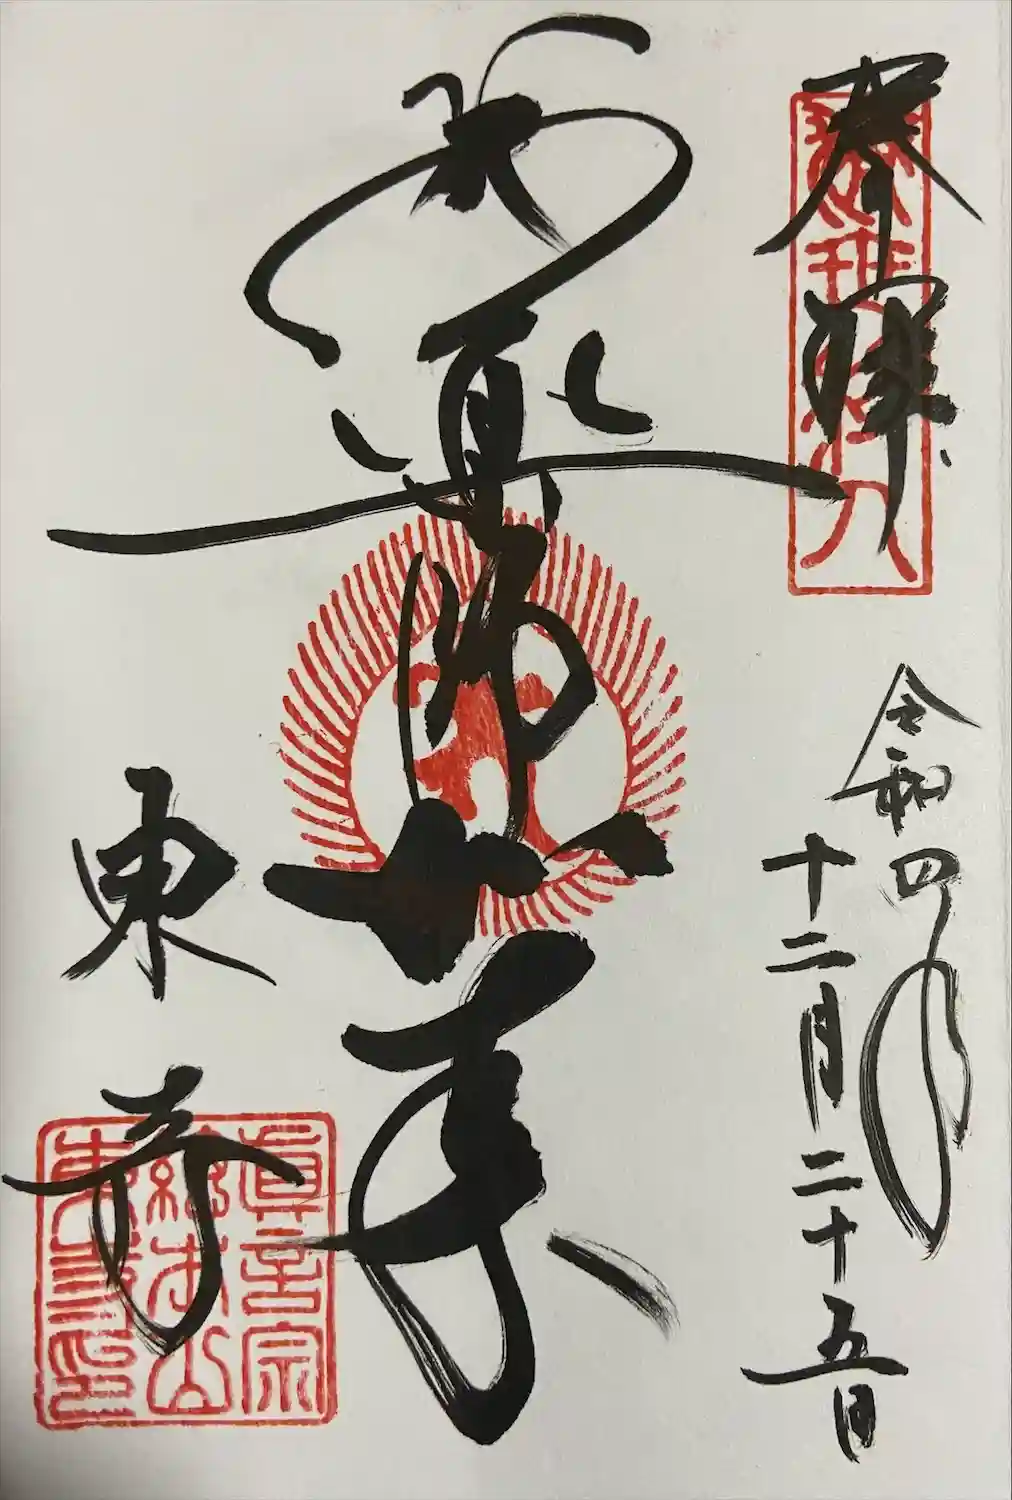 奉拝
令和四年
十二月二十五日
薬師如来
東寺
眞言宗
総本山
東寺印